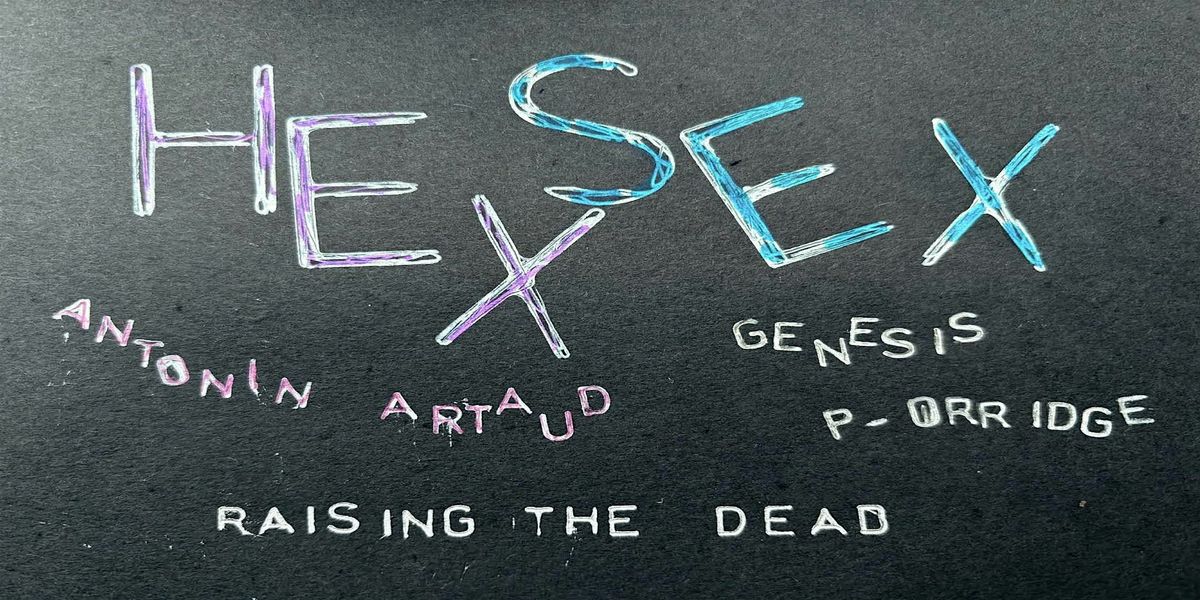 HEX SEX
ANTONIN ARTAUD
GENESIS
P-ORRIDGE
RAISING THE DEAD